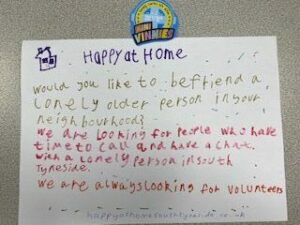 MINI
VINNIES
HAPPY at HOME
would you like to befriend a
lonely older person in your
neighbourhood?
we are looking for people who have
time to call and have a chat.
with a lonely person in south
Tyneside.
we are always looking for volunteers
happyathomesouthtyneside.co.uk